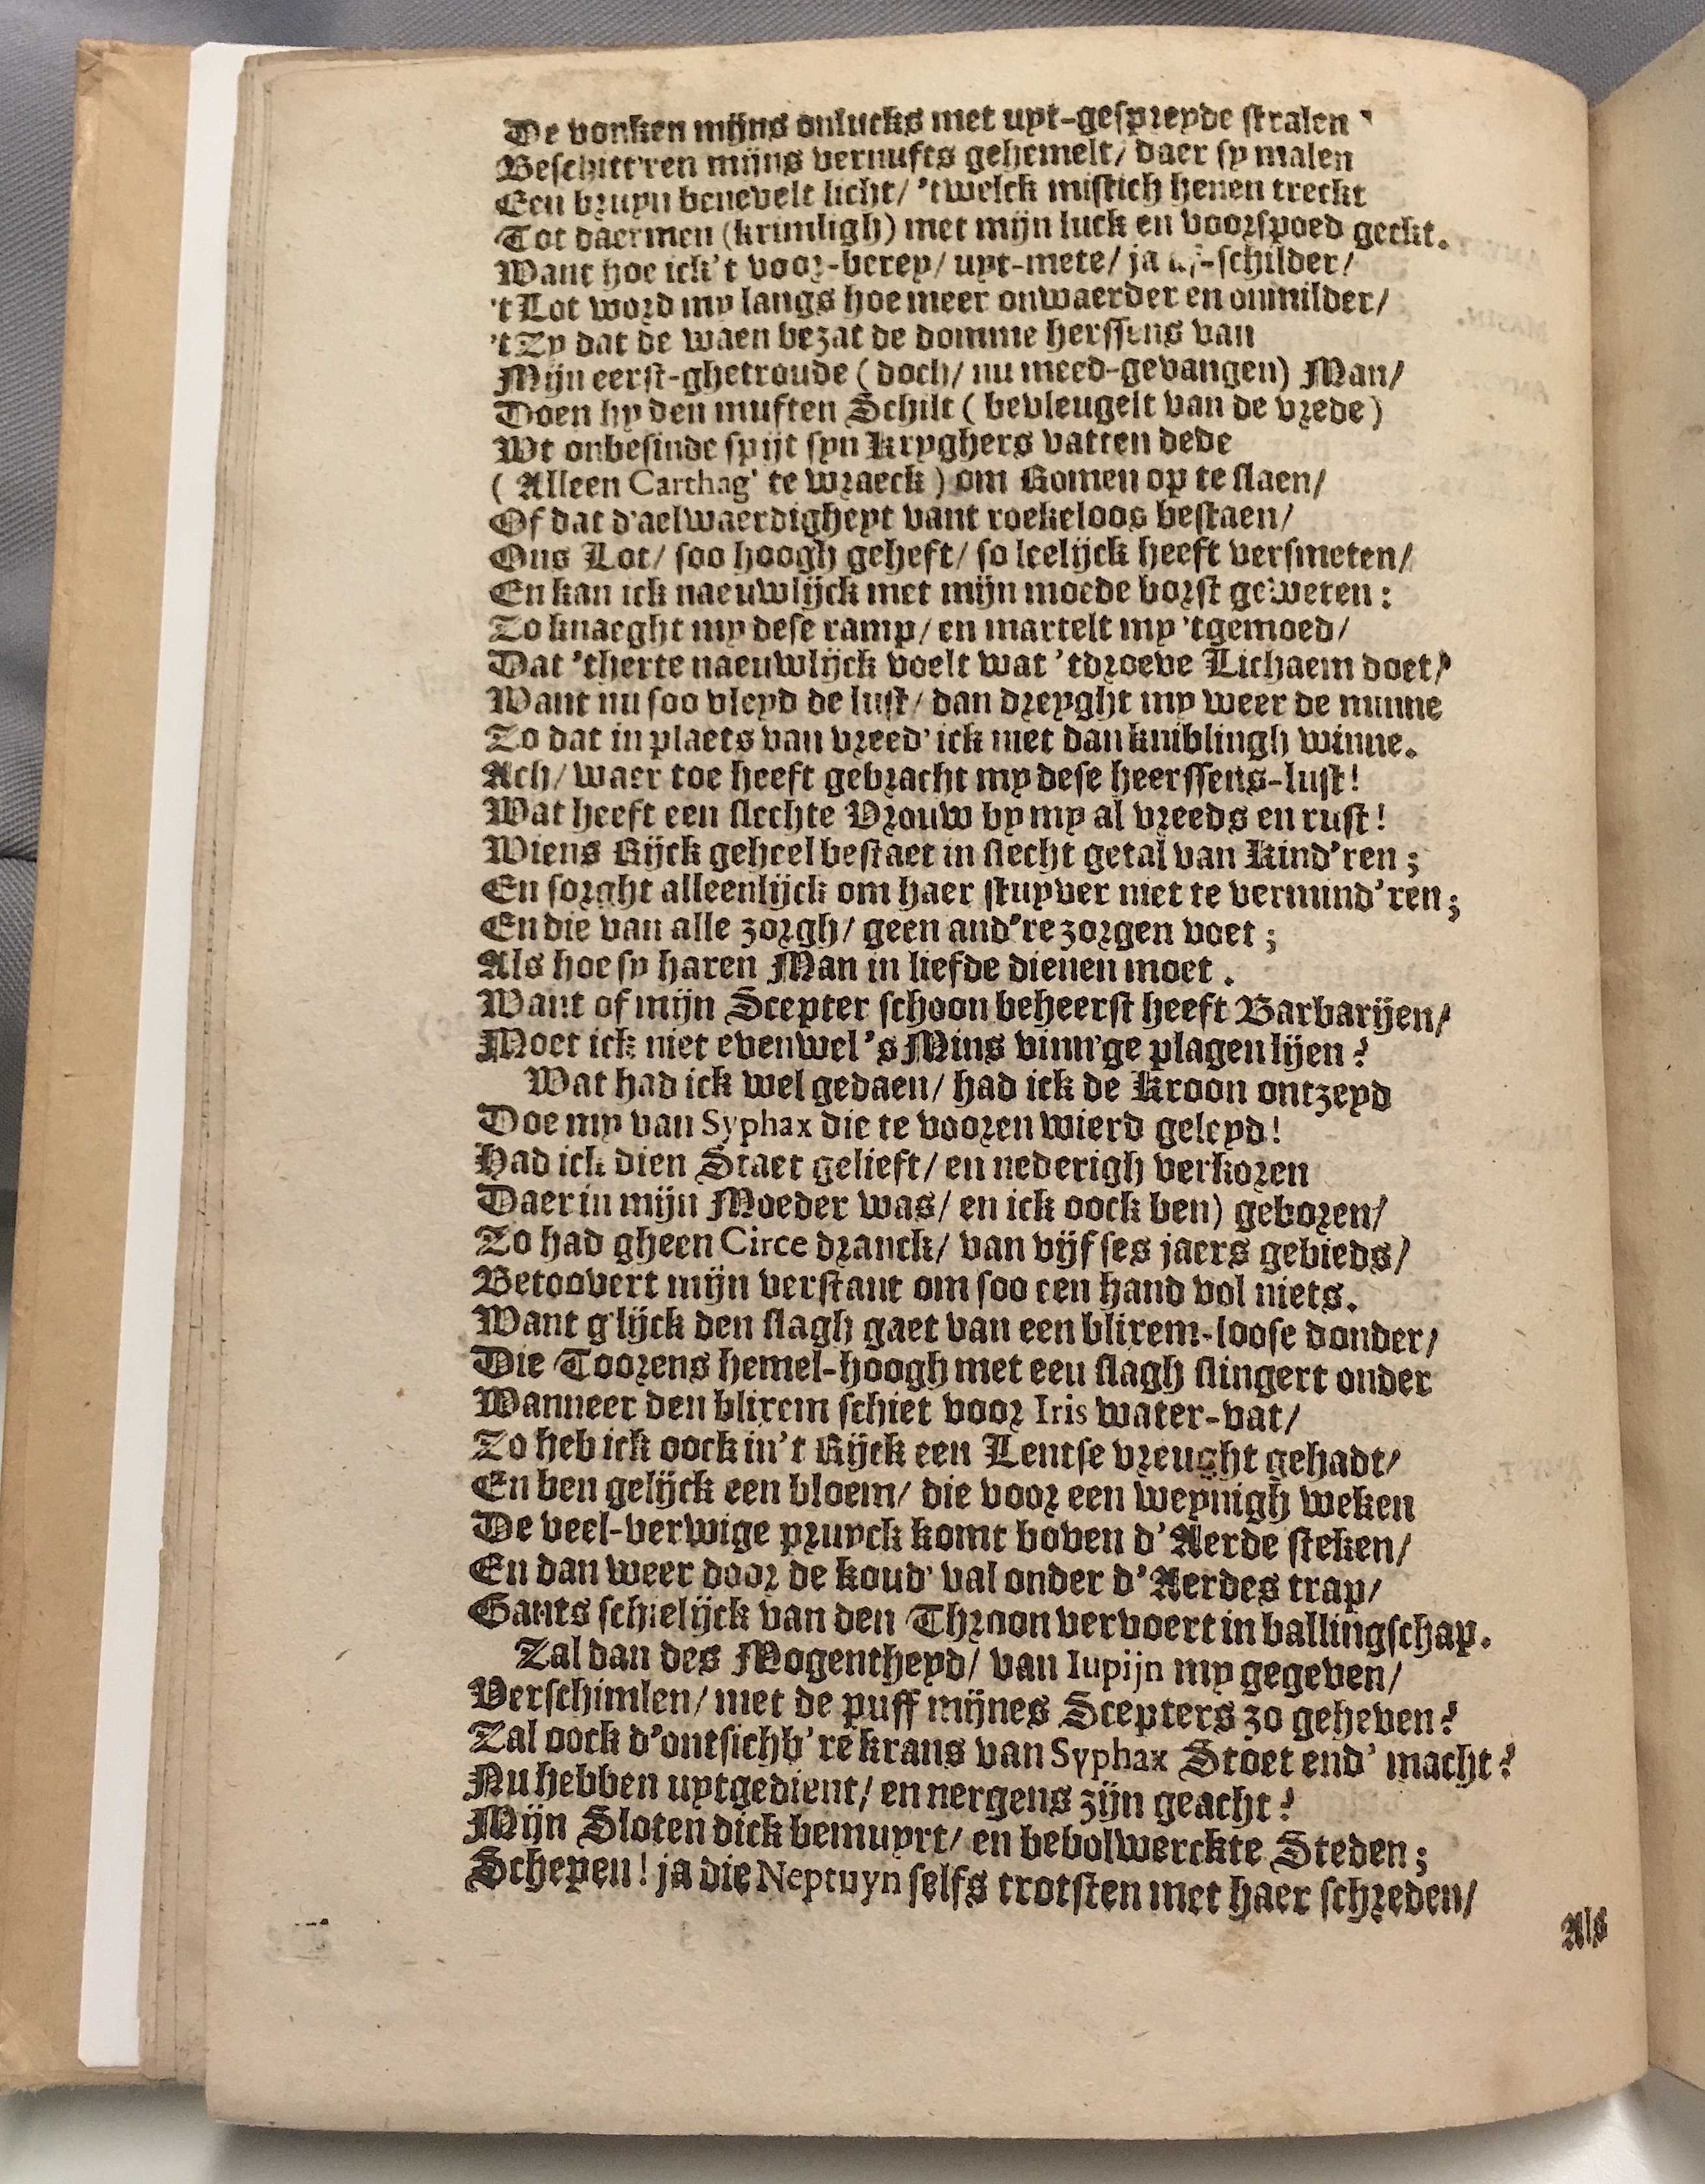 De vonken mijns onlucks met uyt-gespreyde stralen
Beschitt'ren mijns vernufts gehemelt/ daer sy malen
Een bruyn benevelt licht/ 'twelck mistich henen treckt
Tot daermen (krimligh) met mijn luck en voorspoed geckt.
Want hoe ick't voor-berey/ uyt-mete/ ja af-schilder/
't Lot word my langs hoe meer onwaerder en onmilder/
't Zy dat de waen bezat de domme herssens van
Mijn eerst-ghetroude (doch/ nu meed-gevangen) Man/
Doen hy den muften Schilt (bevleugelt van de vrede)
Wt onbesinde spijt syn Kryghers vatten dede
(Alleen Carthag' te wraeck) om Romen op te slaen/
Of dat d'aelwaerdigheyt vant roekeloos bestaen/
Ons Lot/ soo hoogh geheft/ so leelijck heeft versmeten/
En kan ick naeuwlijck met mijn moede borst geweten:
Zo knaeght my dese ramp/ en martelt my 'tgemoed/
Dat 'therte naeuwlijck voelt wat 'tdroeve Lichaem doet/
Want nu soo vleyd de lust/ dan dreyght my weer de minne
Zo dat in plaets van vreed' ick niet dan kniblingh winne.
Ach/ waer toe heeft gebracht my dese heerssens-lust!
Wat heeft een slechte Vrouw by my al vreeds en rust!
Wiens Rijck geheel bestaet in slecht getal van Kind'ren;
En sorght alleenlijck om haer stuyver niet te vermind'ren;
En die van alle zorgh/ geen and're zorgen voet;
Als hoe sy haren Man in liefde dienen moet.
Want of mijn Scepter schoon beheerst heeft Barbarijen/
Moet ick niet evenwel 's Mins vinn'ge plagen lijen?
Wat had ick wel gedaen/ had ick de Kroon ontzeyd
Doe my van Syphax die te vooren wierd geleyd!
Had ick dien Staet gelieft/ en nederigh verkoren
Daer in mijn Moeder was/ en ick oock ben) geboren/
Zo had gheen Circe dranck/ van vijf ses jaers gebieds/
Betoovert mijn verstant om soo een hand vol niets.
Want g'lijck den slagh gaet van een blixem-loose donder/
Die Toorens hemel-hoogh met een slagh slingert onder
Wanneer den blixem schiet voor Iris water-vat/
Zo heb ick oock in't Rijck een Lentse vreught gehadt/
En ben gelijck een bloem/ die voor een weynigh weken
De veel-verwige pruyck komt boven d'Aerde steken/
En dan weer door de koud' val onder d'Aerdes trap/
Gants schielijck van den Throon vervoert in ballingschap.
Zal dan des Mogentheyd/ van Iupijn my gegeven/
Verschimlen/ met de puff mijnes Scepters zo geheven?
Zal oock d'ontsichb're krans van Syphax Stoet end' macht?
Nu hebben uytgedient/ en nergens zijn geacht?
Mijn Sloten dick bemuyrt/ en bebolwerckte Steden;
Schepen! ja die Neptuyn selfs trotsten met haer schreden/
Als